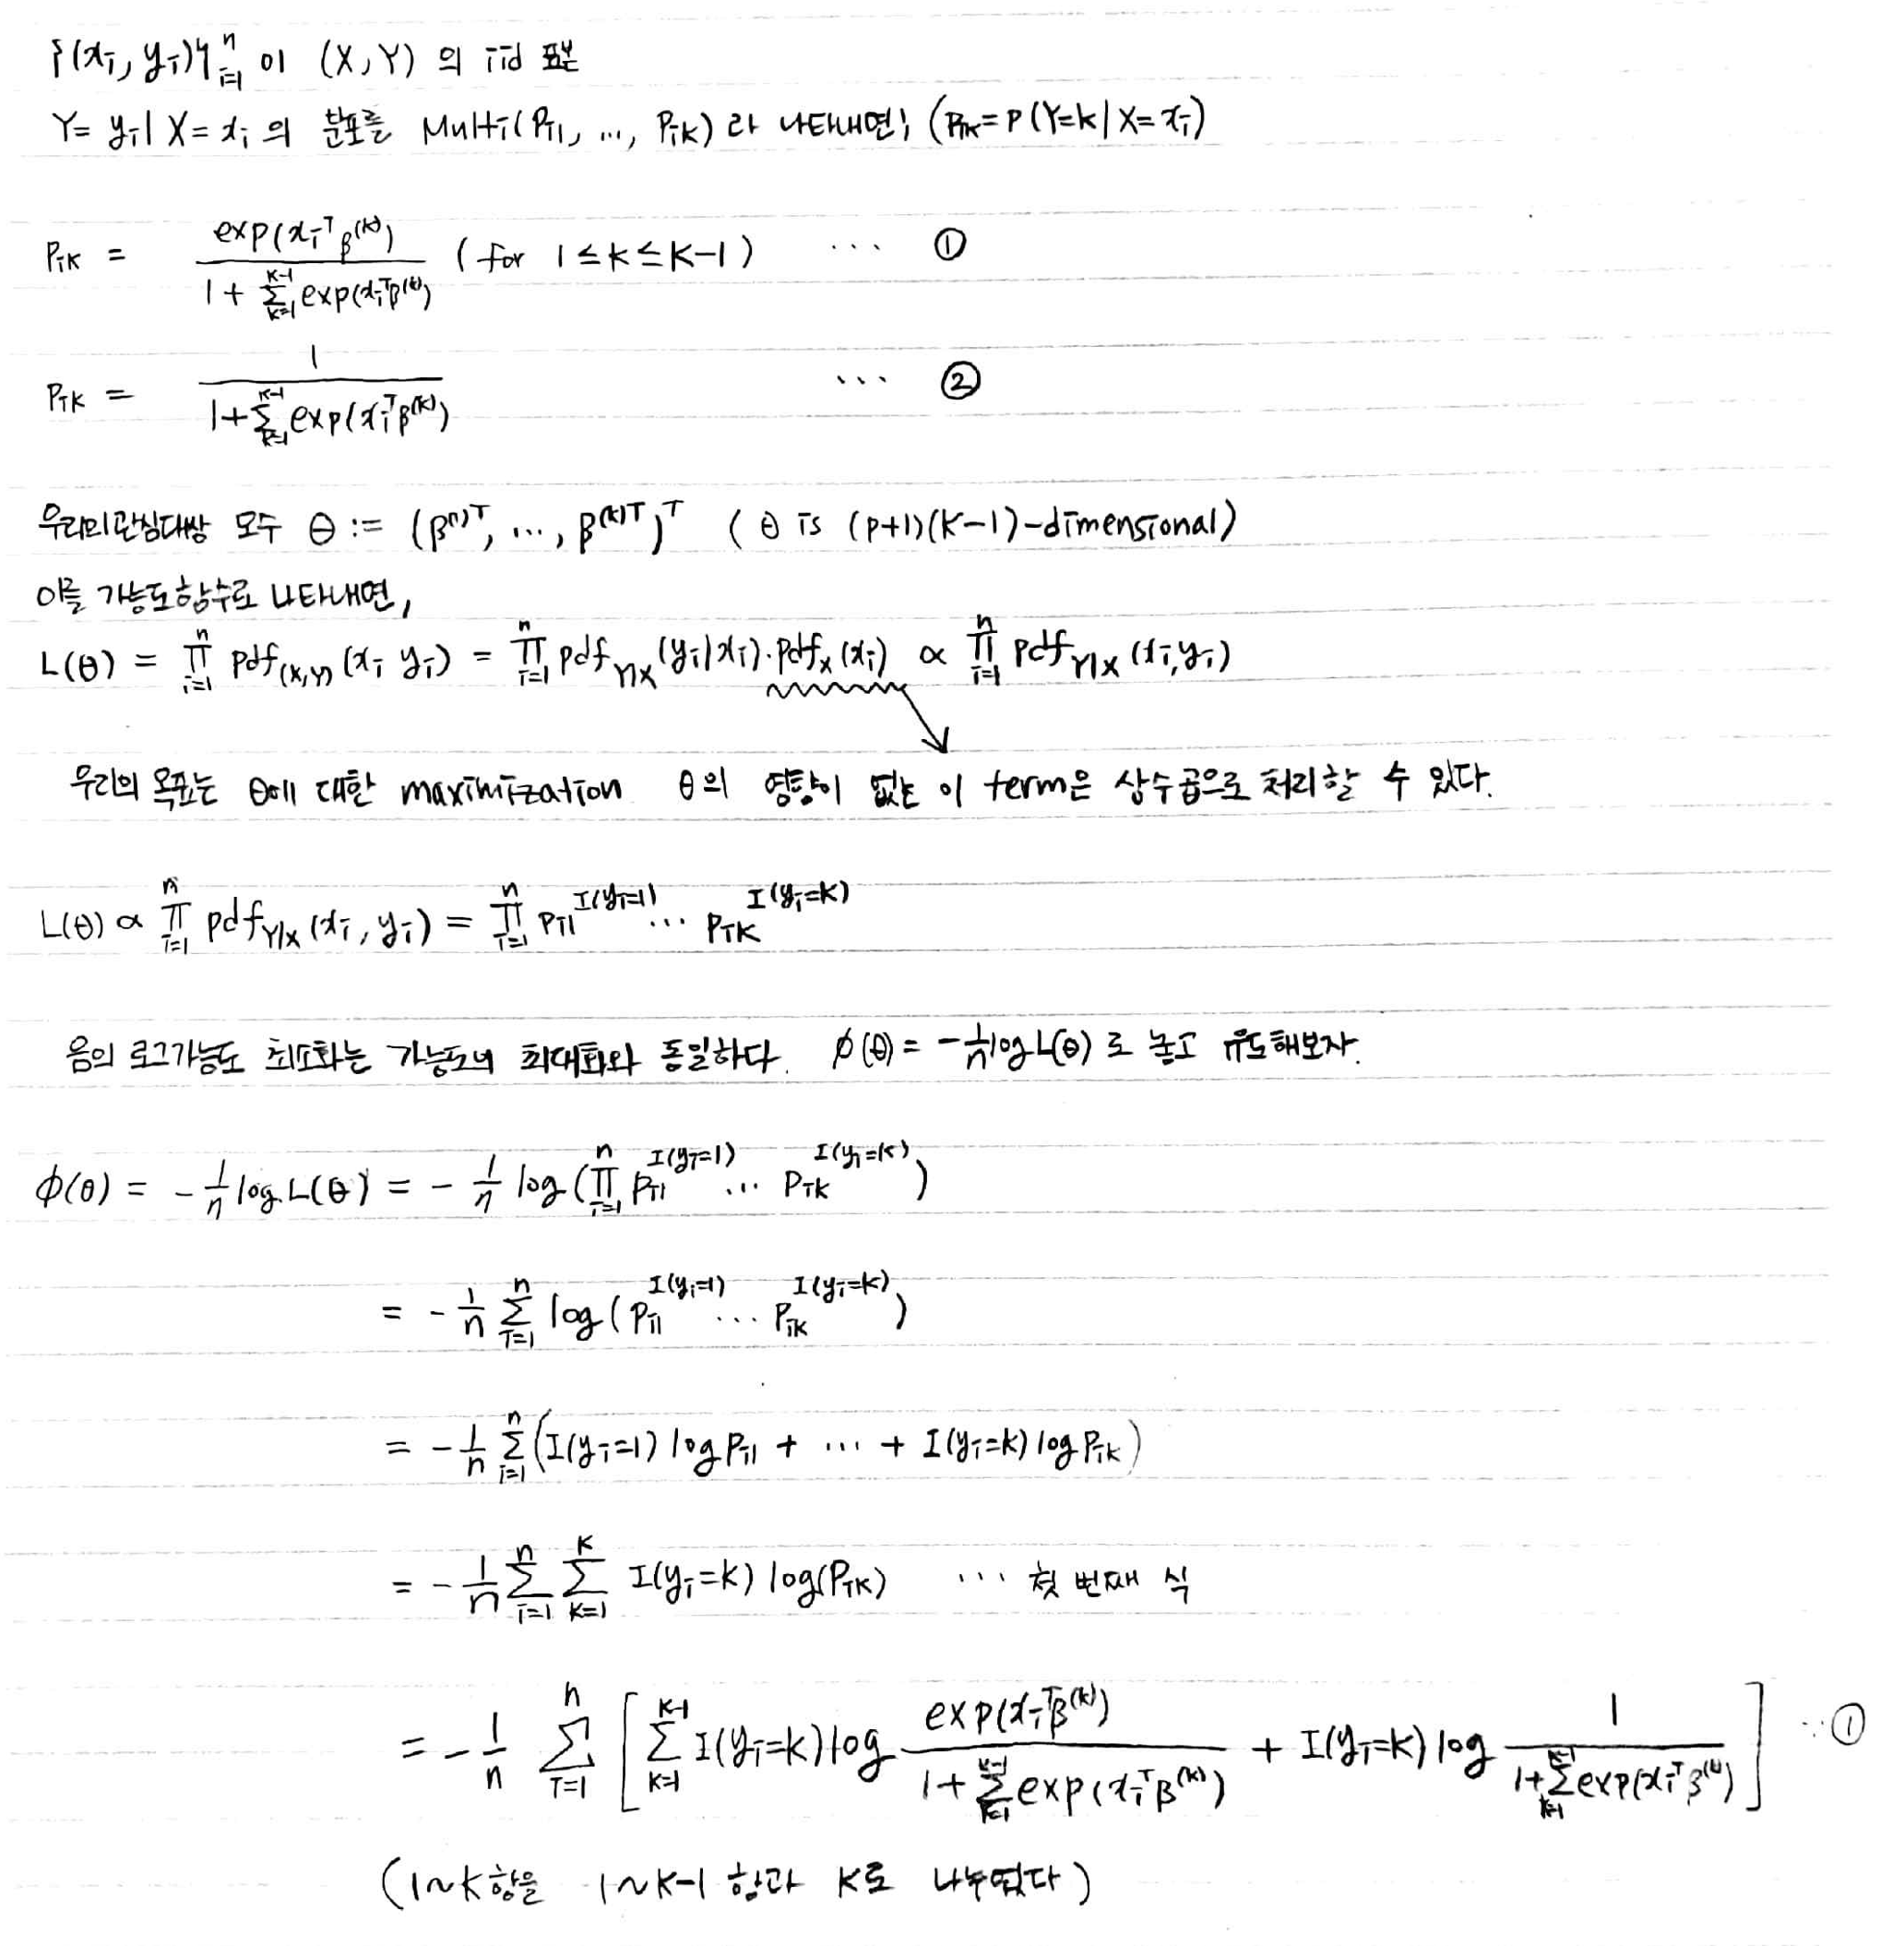 {(xi, yi)}ⁿᵢ₌₁ 이 (X,Y) 의 iid 표본
Y= yi | X= xi 의 분포를 Multi(Pi1, ..., PiK) 라 나타내면; (Pik= P(Y=k | X= xi)
Pik = exp(xiᵀβ⁽ᵏ⁾) / (1+ Σ_{k=1}^{K-1} exp(xiᵀβ⁽ᵏ⁾)) (for 1≤k≤K-1) ... ①
PiK = 1 / (1+Σ_{k=1}^{K-1} exp(xiᵀβ⁽ᵏ⁾)) ... ②
우리의 관심대상 모수 θ := (β⁽¹⁾ᵀ, ..., β⁽ᴷ⁾ᵀ)ᵀ (θ is (p+1)(K-1)-dimensional)
이를 가능도함수로 나타내면,
L(θ) = Π_{i=1}^{n} pdf_(X,Y) (xi yi) = Π_{i=1}^{n} pdf_Y|X (yi|xi)·pdf_X (xi) ∝ Π_{i=1}^{n} pdf_Y|X (xi,yi)
우리의 목표는 θ에 대한 maximization θ의 영향이 없는 이 term은 상수곱으로 처리할 수 있다.
L(θ) ∝ Π_{i=1}^{n} pdf_Y|X (xi, yi) = Π_{i=1}^{n} Pi1^{I(yi=1)} ... PiK^{I(yi=K)}
음의 로그가능도 최소화는 가능도의 최대화와 동일하다. ϕ(θ) = -1/n log L(θ) 로 놓고 유도해보자.
ϕ(θ) = -1/n log L(θ) = -1/n log(Π_{i=1}^{n} Pi1^{I(yi=1)} ... PiK^{I(yi=K)})
= -1/n Σ_{i=1}^{n} log(Pi1^{I(yi=1)} ... PiK^{I(yi=K)})
= -1/n Σ_{i=1}^{n} (I(yi=1) log Pi1 + ... + I(yi=K) log PiK)
= -1/n Σ_{i=1}^{n} Σ_{k=1}^{K} I(yi=k) log(Pik) ... 첫 번째 식
= -1/n Σ_{i=1}^{n} [Σ_{k=1}^{K-1} I(yi=k) log exp(xiᵀβ⁽ᵏ⁾) / (1+ Σ_{k=1}^{K-1} exp(xiᵀβ⁽ᵏ⁾)) + I(yi=K) log 1 / (1+Σ_{k=1}^{K-1} exp(xiᵀβ⁽ᵏ⁾))] ∵①
(1~K항을 1~K-1 항과 K로 나누었다)